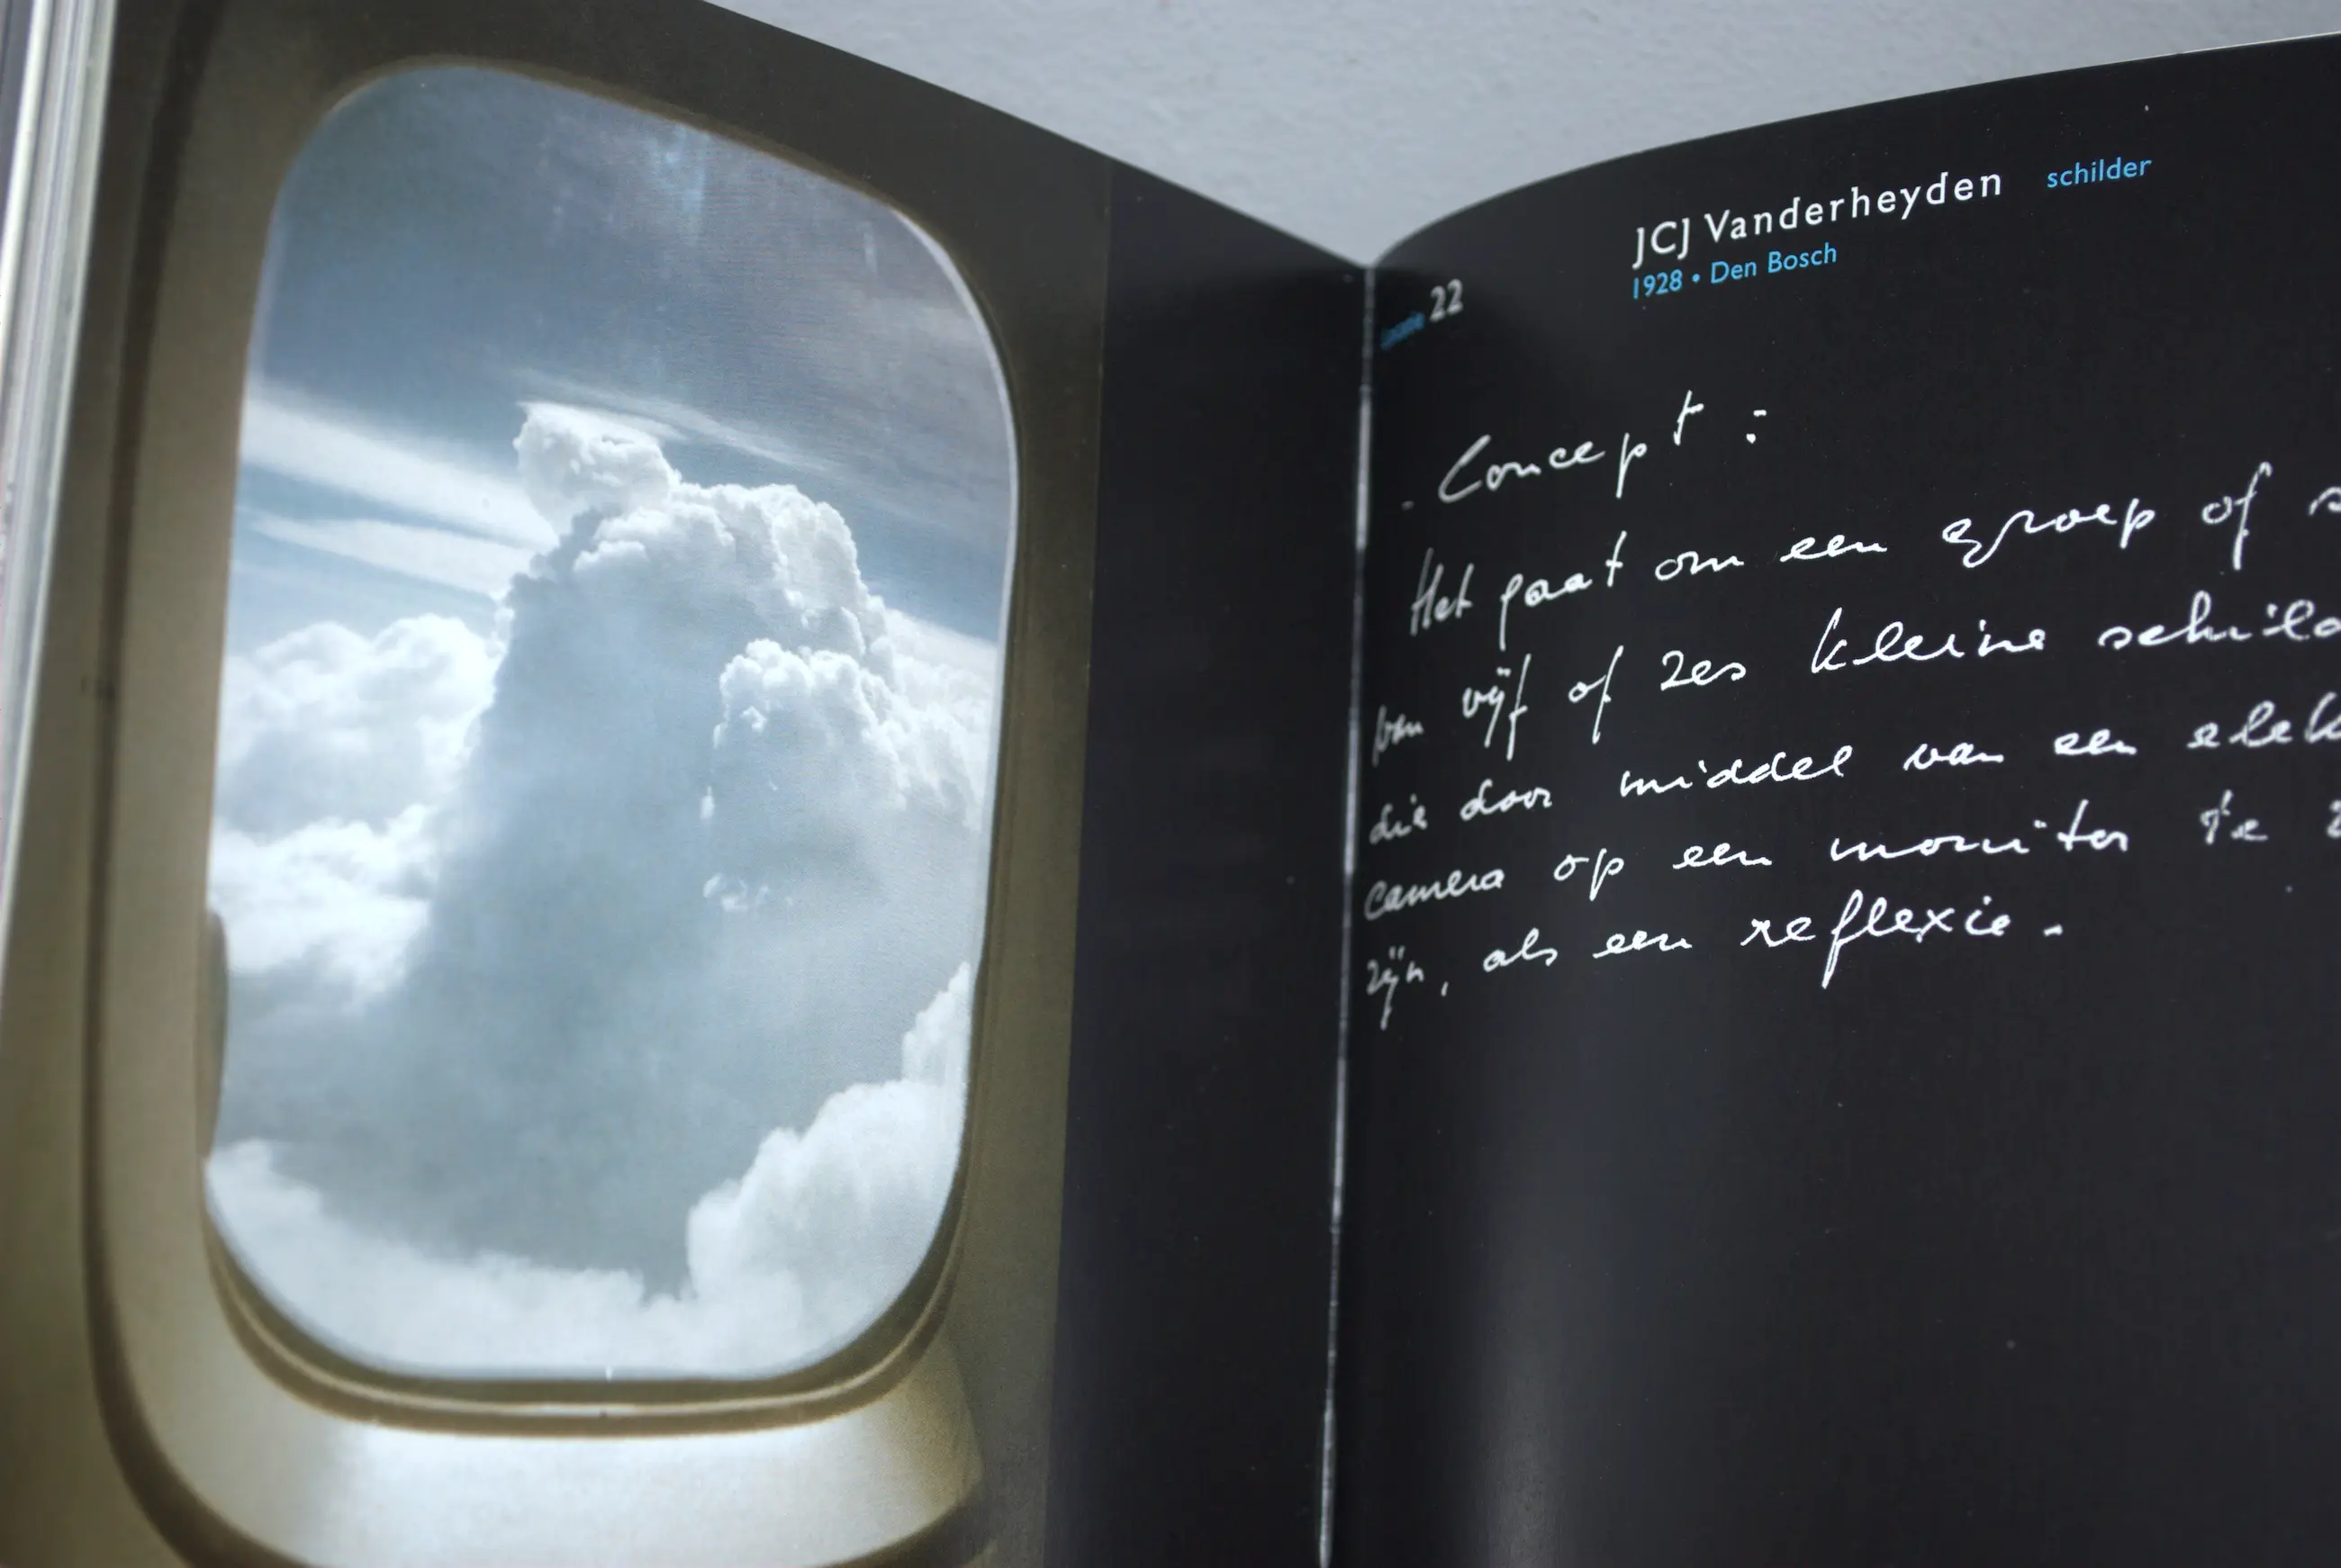 JCJ Vanderheyden schilder
1928 • Den Bosch
locatie 22
. Concept :
Het gaat om een groep of
van vijf of zes kleine schild
die door middel van een elek
camera op een monitor te
zijn, als een reflexie.